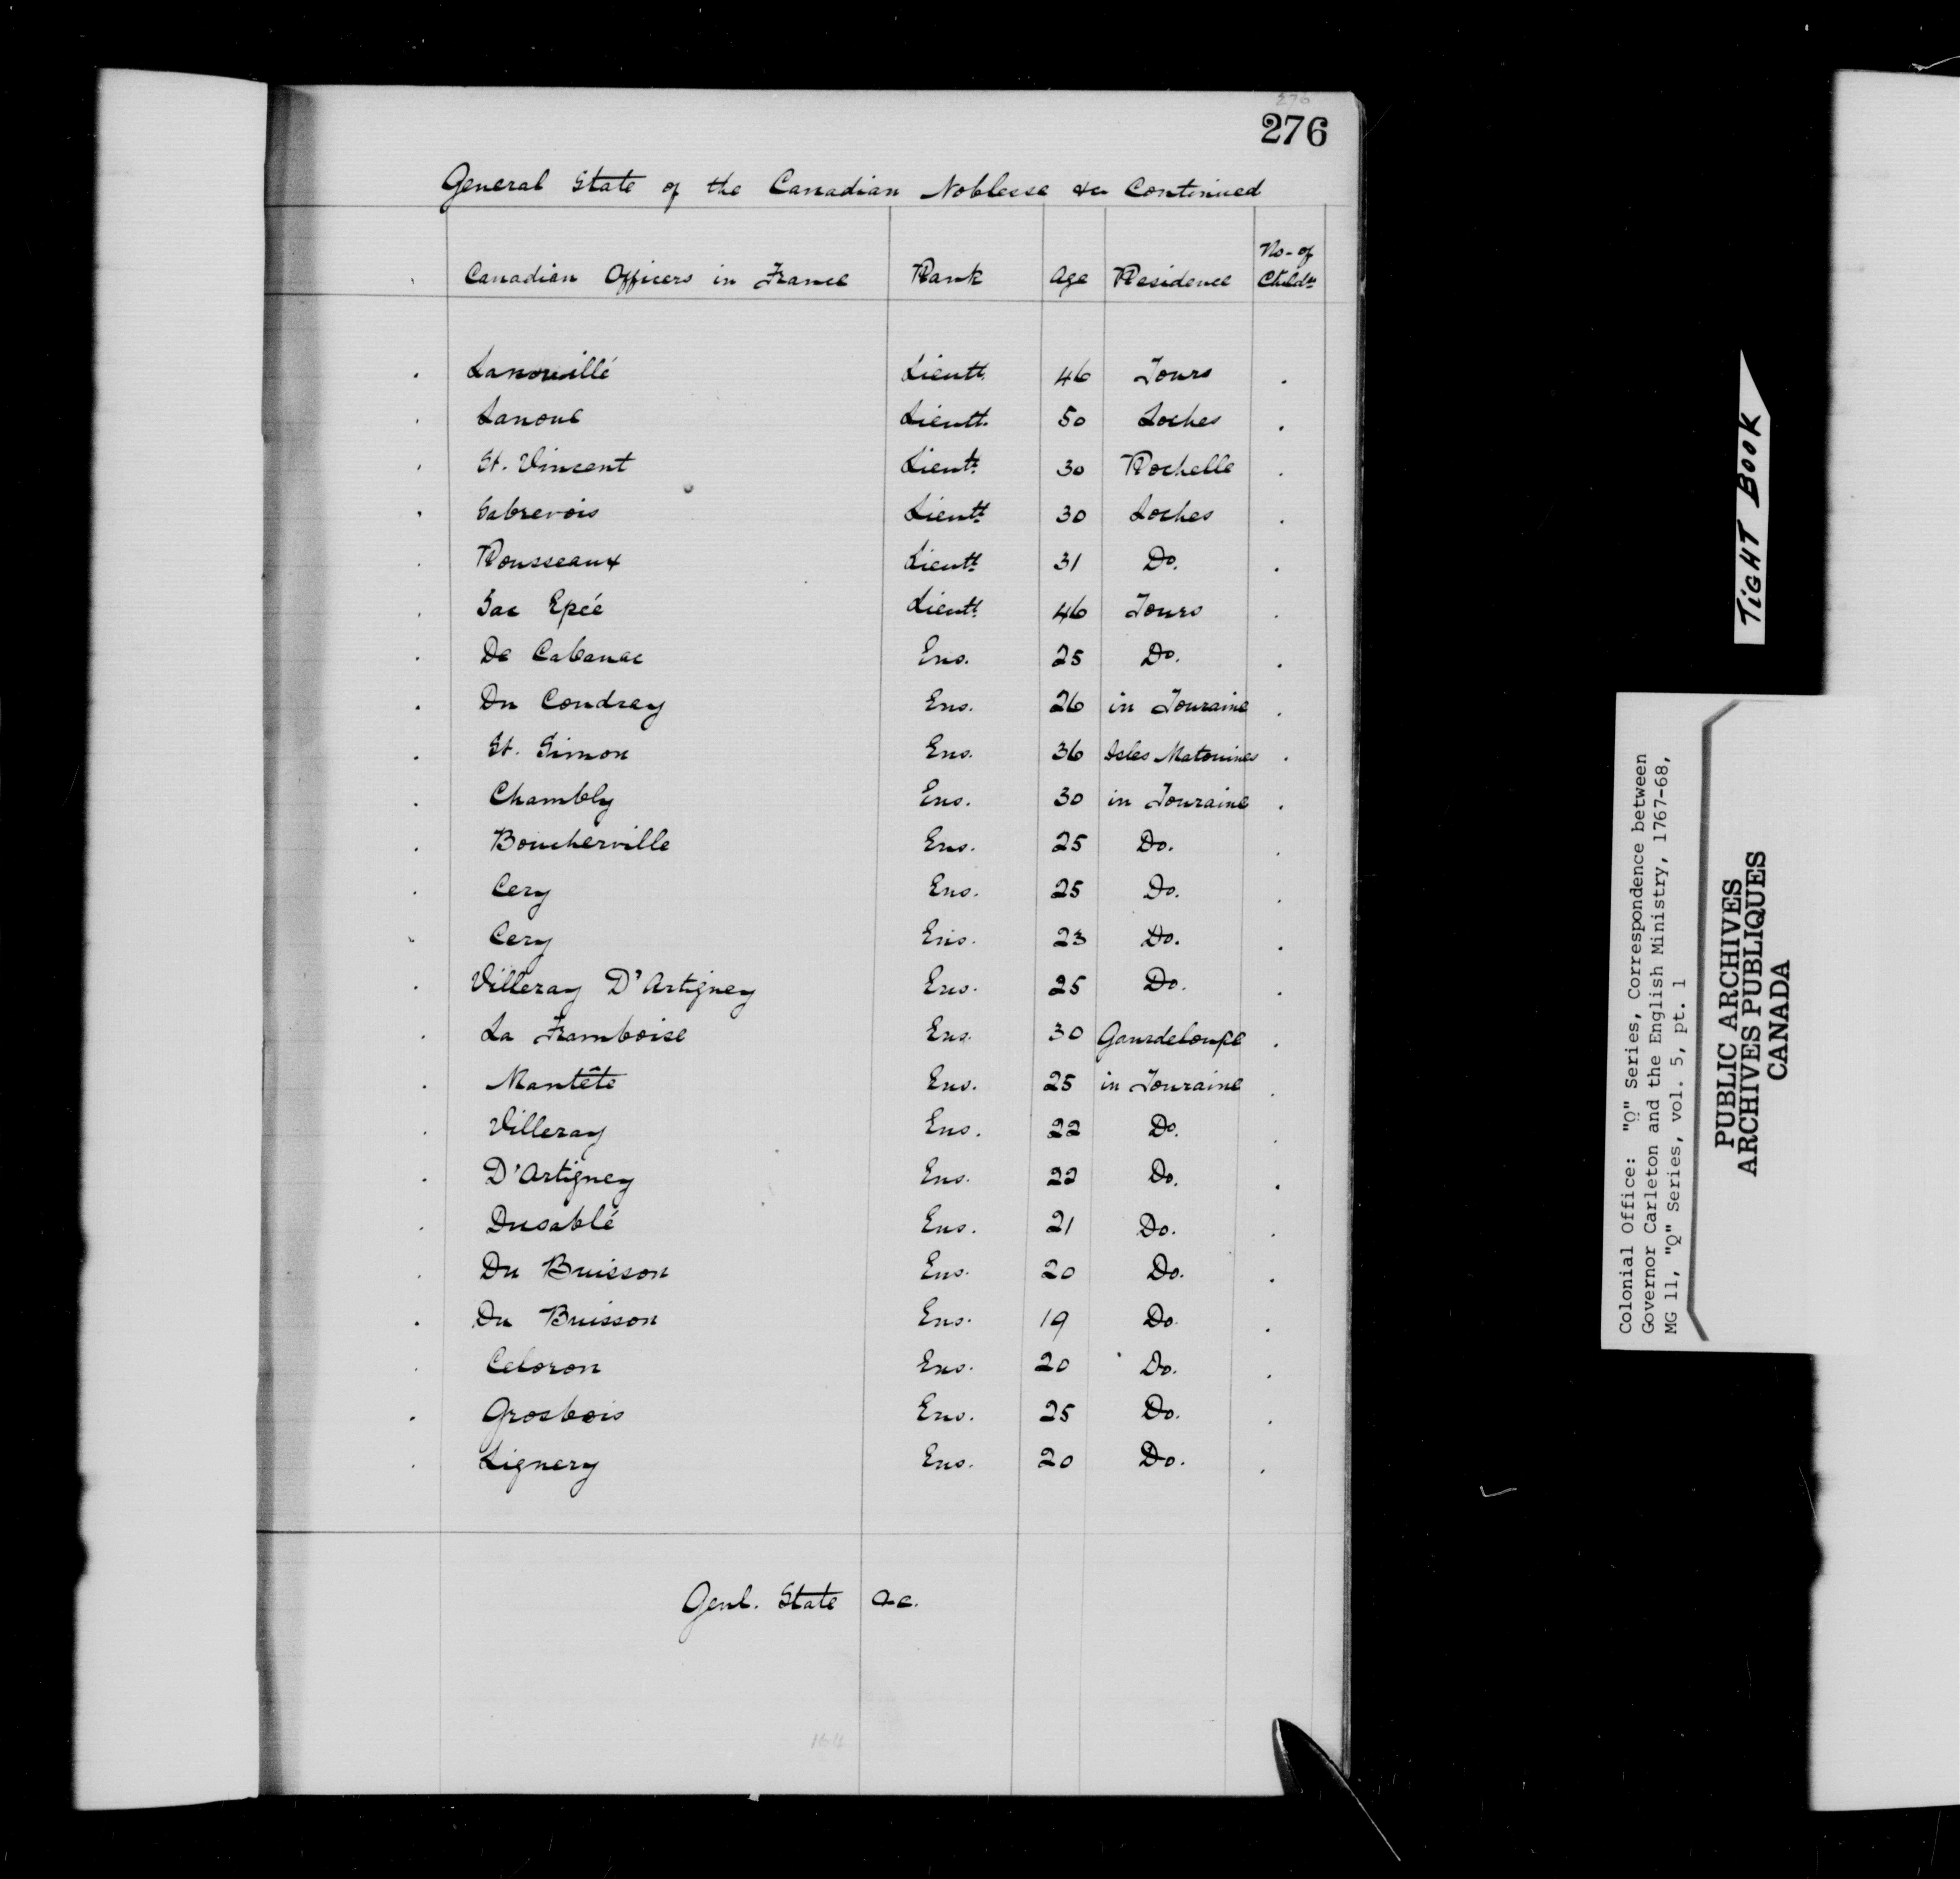 276
276
General State of the Canadian Noblesse &c Continued
Canadian Officers in France Rank Age Residence No- of Childn
Lanouillé Lieutt. 46 Tours .
Lanoue Lieutt. 50 Loches .
St. Vincent Lieutt. 30 Rochelle .
Sabrevois Lieutt. 30 Loches .
Rousseaux Lieutt. 31 Do. .
Sac Epéé Lieutt. 46 Tours .
De Cabanac Ens. 25 Do. .
Du Condray Ens. 26 in Touraine .
St. Simon Ens. 36 Isles Matouines .
Chambly Ens. 30 in Touraine .
Boucherville Ens. 25 Do. .
Cery Ens. 25 Do. .
Cery Ens. 23 Do. .
Villeray D'Artigney Ens. 25 Do. .
La Framboise Ens. 30 Gaurdeloupe .
Mantête Ens. 25 in Touraine .
Villeray Ens. 22 Do. .
D'Artigney Ens. 22 Do. .
Dusablé Ens. 21 Do. .
Du Buisson Ens. 20 Do. .
Du Buisson Ens. 19 Do. .
Celoron Ens. 20 Do. .
Grosbois Ens. 25 Do. .
Lignery Ens. 20 Do. .
Genl. State &c.
164
TIGHT BOOK
Colonial Office: "Q" Series, Correspondence between
Governor Carleton and the English Ministry, 1767-68,
MG 11, "Q" Series, vol. 5, pt. 1
PUBLIC ARCHIVES
ARCHIVES PUBLIQUES
CANADA